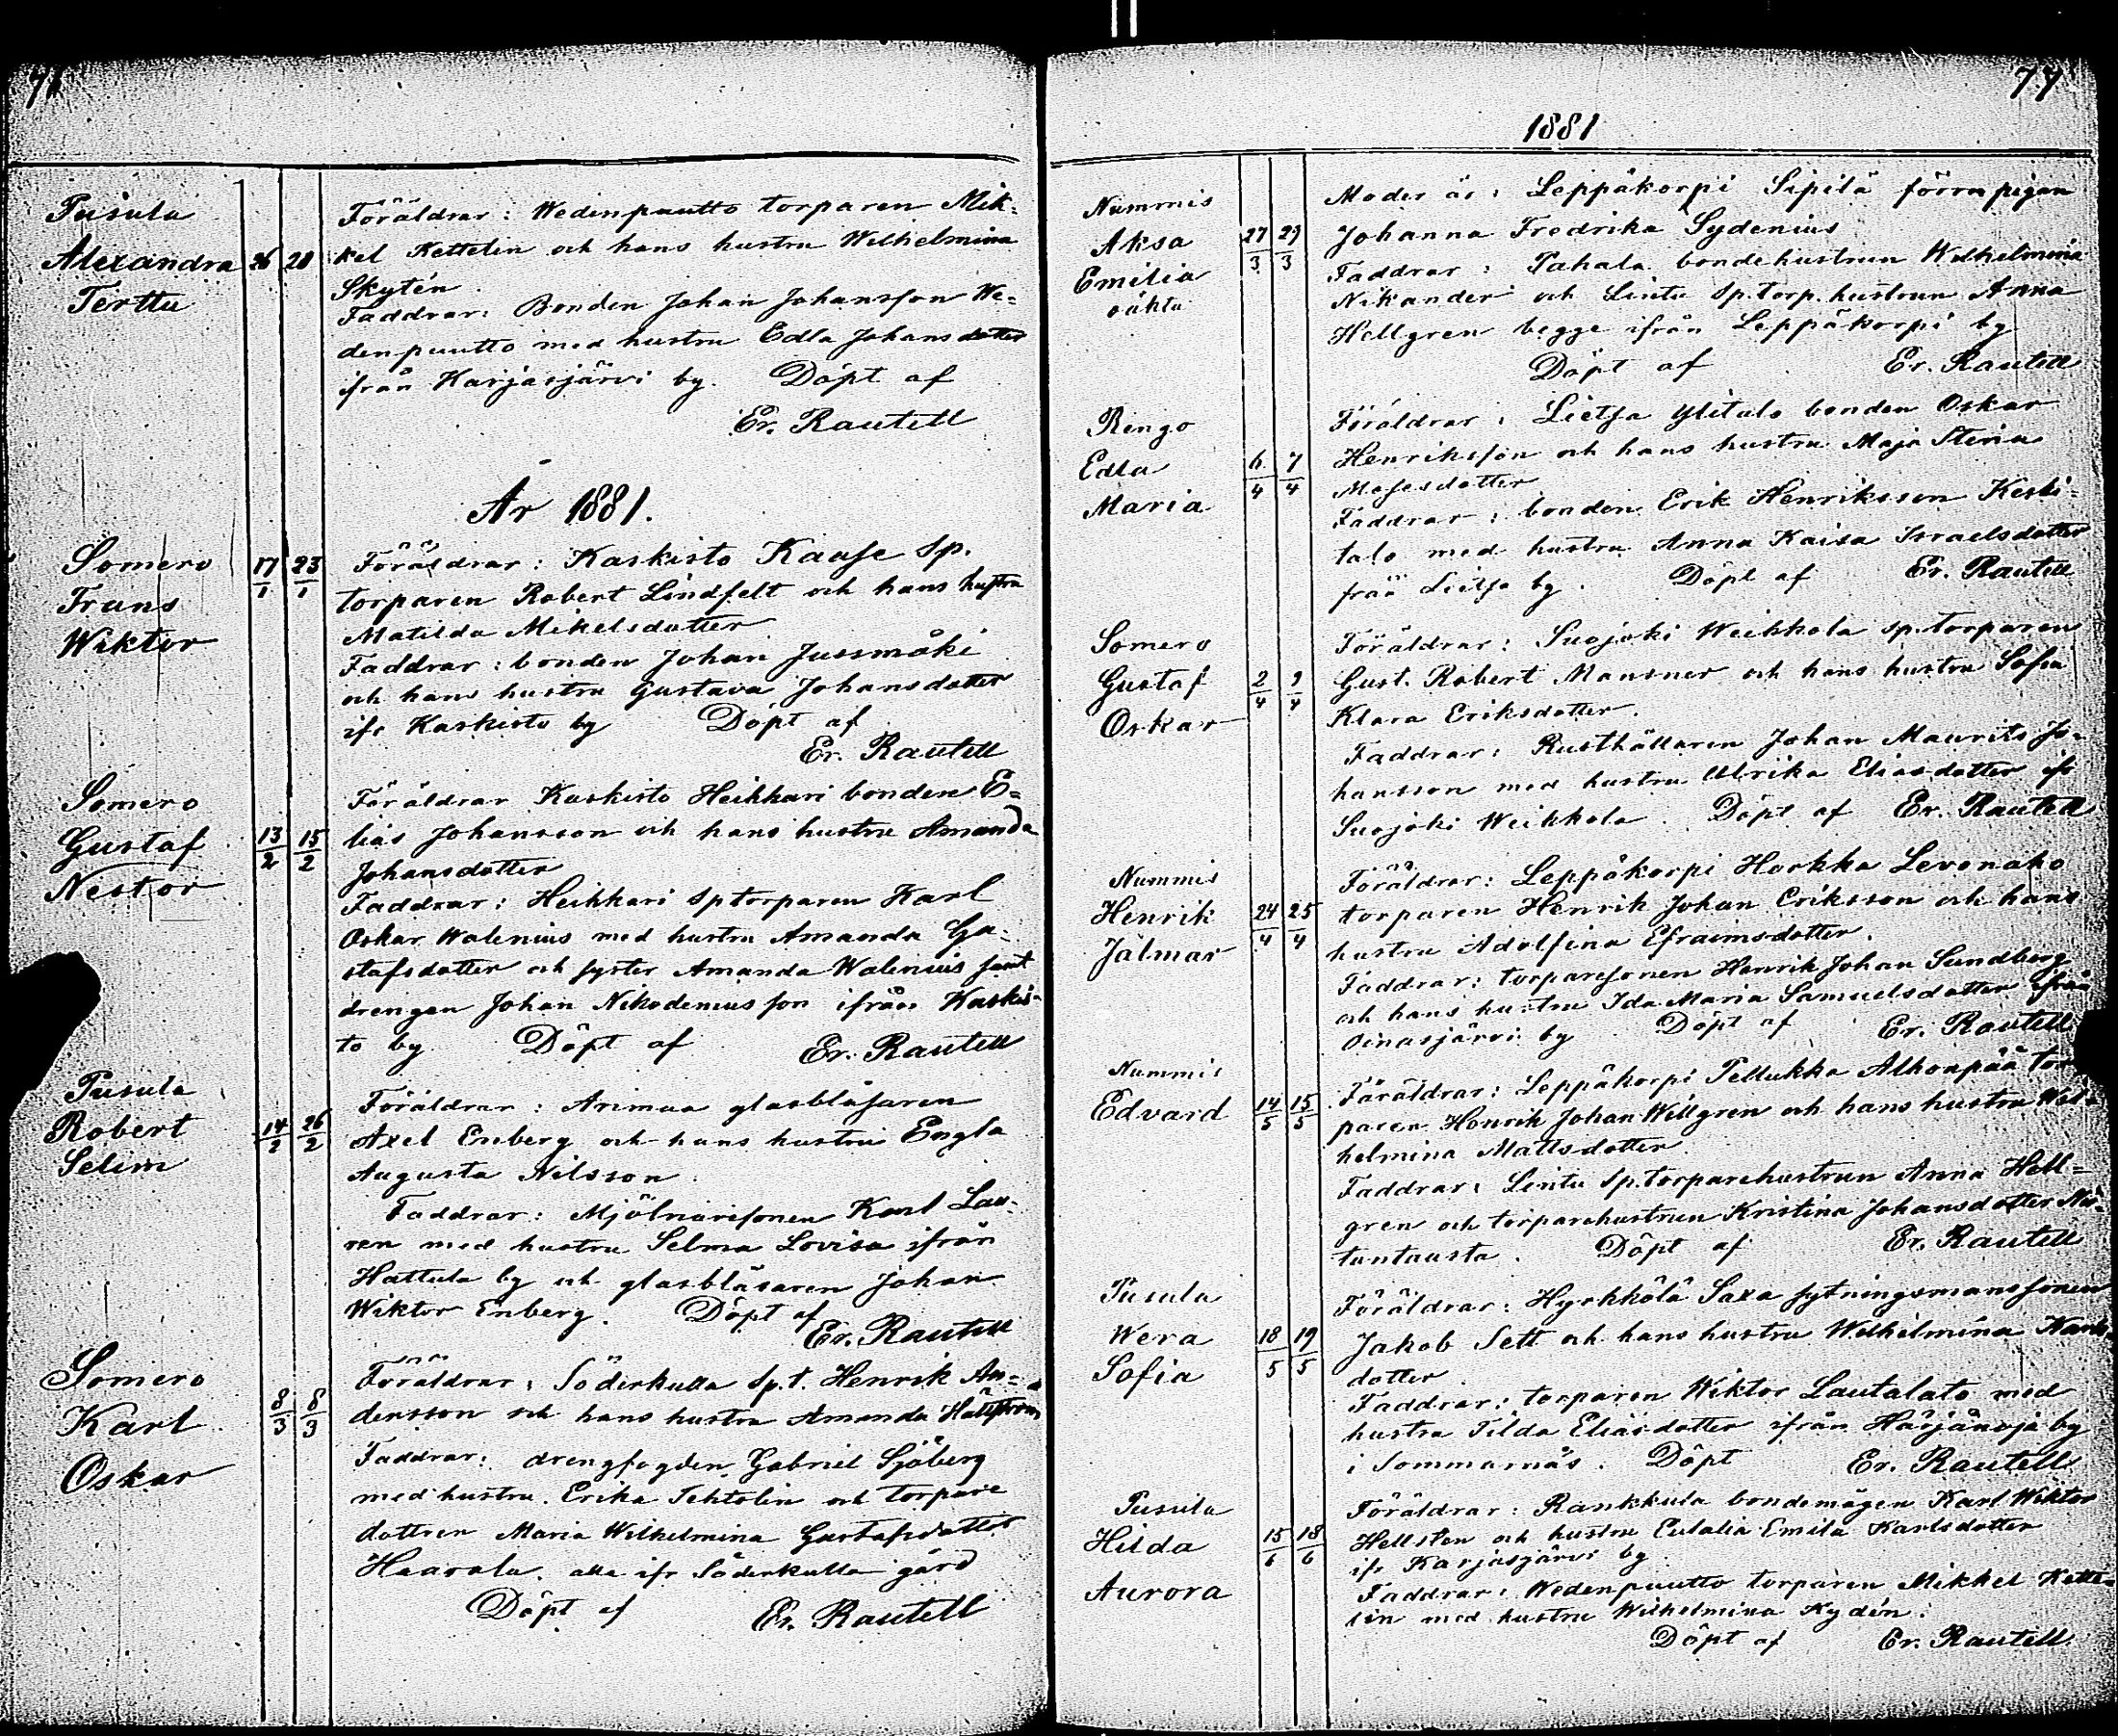 76
Pusula
Alexandra 26 28
Terttu
Föräldrar: Wedenpuutto torparen Mik-
kel Kettelin och hans hustru Wilhelmina
Skytén.
Faddrar: Bonden Johan Johansson We-
denpuutto med hustru Edla Johansdotter
ifrån Karjasjärvi by. Döpt af
Er. Rautell
År 1881.
Somero
Frans
Wiktor
17/1 23/1
Föräldrar: Kaskisto Kause sp.
torparen Robert Lindfelt och hans hustru
Matilda Mikelsdotter
Faddrar: bonden Johan Jussmäki
och hans hustru Gustava Johansdotter
ifr Kaskisto by Döpt af
Er. Rautell
Somero
Gustaf
Nestor
13/2 15/2
Föräldrar Kaskisto Heikkari bonden E-
lias Johansson och hans hustru Amanda
Johansdotter
Faddrar: Heikkari sp torparen Karl
Oskar Walenius med hustru Amanda Gu-
stafsdotter och syster Amanda Walenius samt
drengen Johan Nikodemusson ifrån Kaskis-
to by Döpt af Er. Rautell
Pusula
Robert
Selim
14/2 26/2
Föräldrar: Arimaa glasblåsaren
Axel Enberg och hans hustru Engla
Augusta Nilsson
Faddrar: Mjölnaresonen Karl Lau-
ren med hustru Selma Lovisa ifrån
Hattula by och glasblåsaren Johan
Wiktor Enberg. Döpt af
Er. Rautell
Somero
Karl
Oskar
8/3 8/3
Föräldrar: Söderkulla sp.t. Henrik An-
dersson och hans hustru Amanda Hällström
Faddrar: drengfogden Gabriel Sjöberg
med hustru Erika Tehtolin och torpare
dottren Maria Wilhelmina Gustafsdotter
Haavala alla ifr Söderkulla gård
Döpt af Er. Rautell
77
1881
Nummis
Aksa
Emilia
oäkta
27/3 29/3
Moder är: Leppäkorpi Sipilä förra pigan
Johanna Fredrika Sydenius
Faddrar: Pahala bondehustrun Wilhelmina
Nikander och Lintu sp. torp. hustrun Anna
Hellgren begge ifrån Leppäkorpi by
Döpt af Er. Rautell
Ringo
Edla
Maria
6/4 7/4
Föräldrar: Lietsa Ylitalo bonden Oskar
Henriksson och hans hustru Maja Stina
Mosesdotter
Faddrar: bonden Erik Henriksson Keski-
talo med hustru Anna Kaisa Israelsdotter
från Lietsa by. Döpt af Er. Rautell
Somero
Gustaf
Oskar
2/4 9/4
Föräldrar: Suojoki Weikkola sp. torparen
Gust. Robert Mansner och hans hustru Sofia
Klara Eriksdotter.
Faddrar: Rusthållaren Johan Maurits Jo-
hansson med hustru Ulrika Eliasdotter ifr
Suojoki Weikkola. Döpt af Er. Rautell
Nummis
Henrik
Jalmar
24/4 25/4
Föräldrar: Leppäkorpi Horkka Levonaho
torparen Henrik Johan Eriksson och hans
hustru Adolfina Efraimsdotter.
Faddrar: torparesonen Henrik Johan Sundberg
och hans hustru Ida Maria Samuelsdotter ifrån
Oinasjärvi by Döpt af Er. Rautell
Nummis
Edvard
14/5 15/5
Föräldrar: Leppäkorpi Pellukka Alhonpää tor
paren Henrik Johan Willgren och hans hustru Wil-
helmina Mattsdotter.
Faddrar: Lintu sp. torparehustrun Anna Hell-
gren och torparehustrun Kristina Johansdotter Nii-
tuntausta. Döpt af Er. Rautell
Pusula
Wera
Sofia
18/5 19/5
Föräldrar: Hyrkkölä Saxa sytningsmanssonen
Jakob Sett och hans hustru Wilhelmina Karls-
dotter
Faddrar: torparen Wiktor Lautalato med
hustru Tilda Eliasdotter ifrån Härjänoja by
i Sommarnäs. Döpt Er. Rautell
Pusula
Hilda
Aurora
15/6 18/6
Föräldrar: Rankkula bondemågen Karl Wiktor
Hellsten och hustru Eulalia Emila Karlsdotter
ifr Karjasjärvi by
Faddrar: Wedenpuutto torparen Mikkel Kette-
lin med hustru Wilhelmina Kydén.
Döpt af Er. Rautell